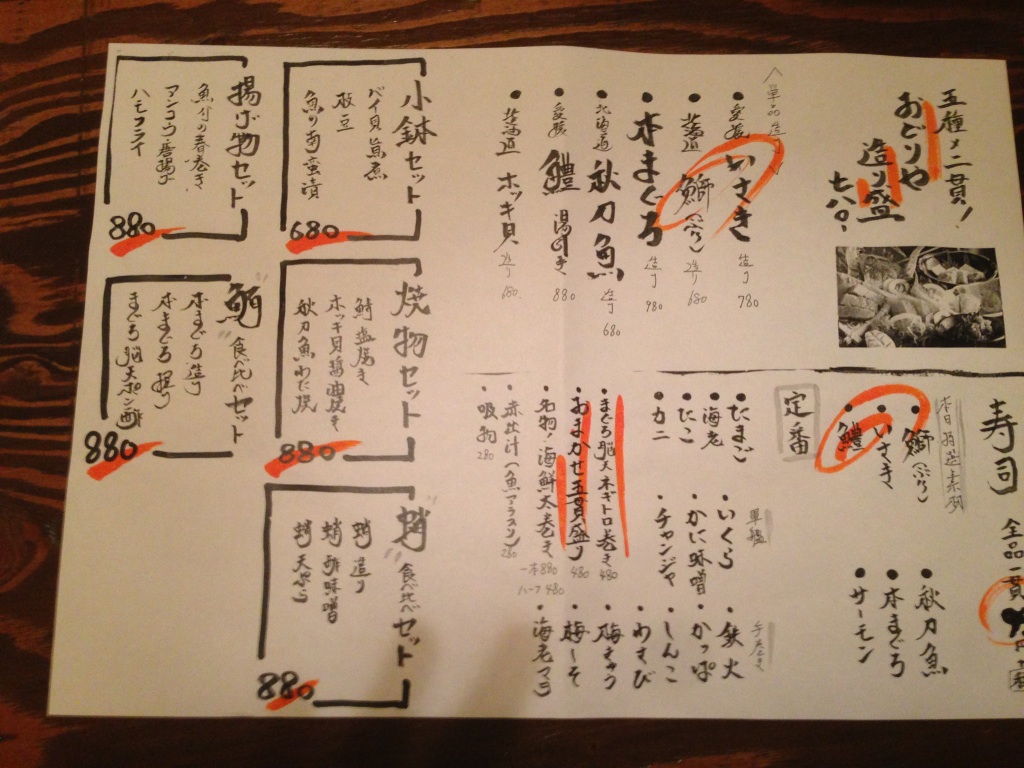 五種〆二貫!
おどりや
造り盛
七八〇、
〈単品造り〉
● 愛媛 いさき 造り 780
● 北海道 鰤(ぶり) 造り 680
● 本まぐろ 造り 980
● 北海道 秋刀魚 造り 680
● 愛媛 鱧 湯引き 880
● 北海道 ホッキ貝 造り 680
小鉢セット
バイ貝旨煮
枝豆
680
揚げ物セット
アンコウ唐揚げ
ハモフライ
880
寿司
全品一貫
本日
● 鰤(ぶり)
● いさき
● 鱧
● 秋刀魚
● 本まぐろ
● サーモン
定番
● たまご
● 海老
● たこ
● カニ
軍艦
・いくら
・かに味噌
・チャンジャ
手巻き
・鉄火
・かっぱ
・しんこ
・わさび
・梅きゅう
・梅しそ
・海老マヨ
・まぐろ脳天ネギトロ巻き 480
・おまかせ五貫盛り 480
・名物!海鮮太巻き 一本880 ハーフ480
・赤出汁(魚アラ入り) 280
・吸物 280
焼物セット
鯖塩焼き
ホッキ貝醤油焼き
秋刀魚わた焼
880
"鮪"食べ比べセット
本まぐろ造り
本まぐろ握り
まぐろ脳天ポン酢
880
"蛸"食べ比べセット
蛸 造り
蛸 酢味噌
蛸 天ぷら
880